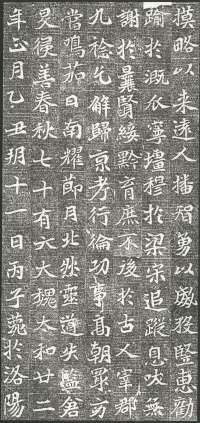 摸略以来遠人播智勇以威豎惠勸
踰於溉瓜寧壃穆於梁宋追蹤息吠無
謝於曩賢綏黔育庶不後於古人宰郡
九稔允解歸京考行倫功事高朝眾方
當鳴茄日南耀節月北然靈道失鑒倉
旻徂善春秋七十有六大魏太和廿二
年正月乙丑朔十一日丙子薨於洛陽